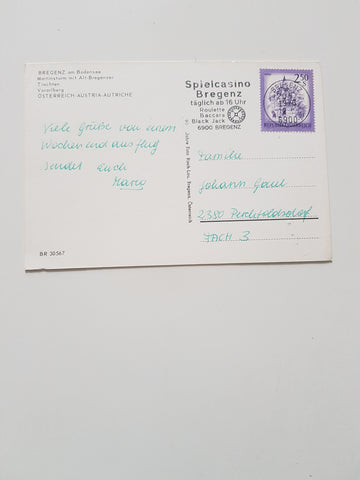 BREGENZ am Bodensee
Martinsturm mit Alt-Bregenzer
Trachten
Vorarlberg
ÖSTERREICH-AUSTRIA-AUTRICHE
Viele Grüße von einem
Wochenendausflug
sendet euch
Mario
BR 30567
Spielcasino
Bregenz
täglich ab 16 Uhr
Roulette
Baccara
Black Jack
6900 BREGENZ
2.50
6900
REPUBLIK ÖSTERREICH
Familie
Johann Gaul
2380 Perchtoldsdorf
FACH 3
Bregenz, Österreich